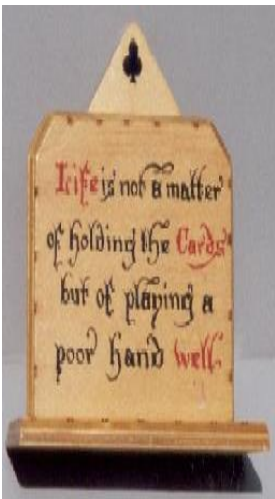 Life is not a matter
of holding the Cards
but of playing a
poor hand well.